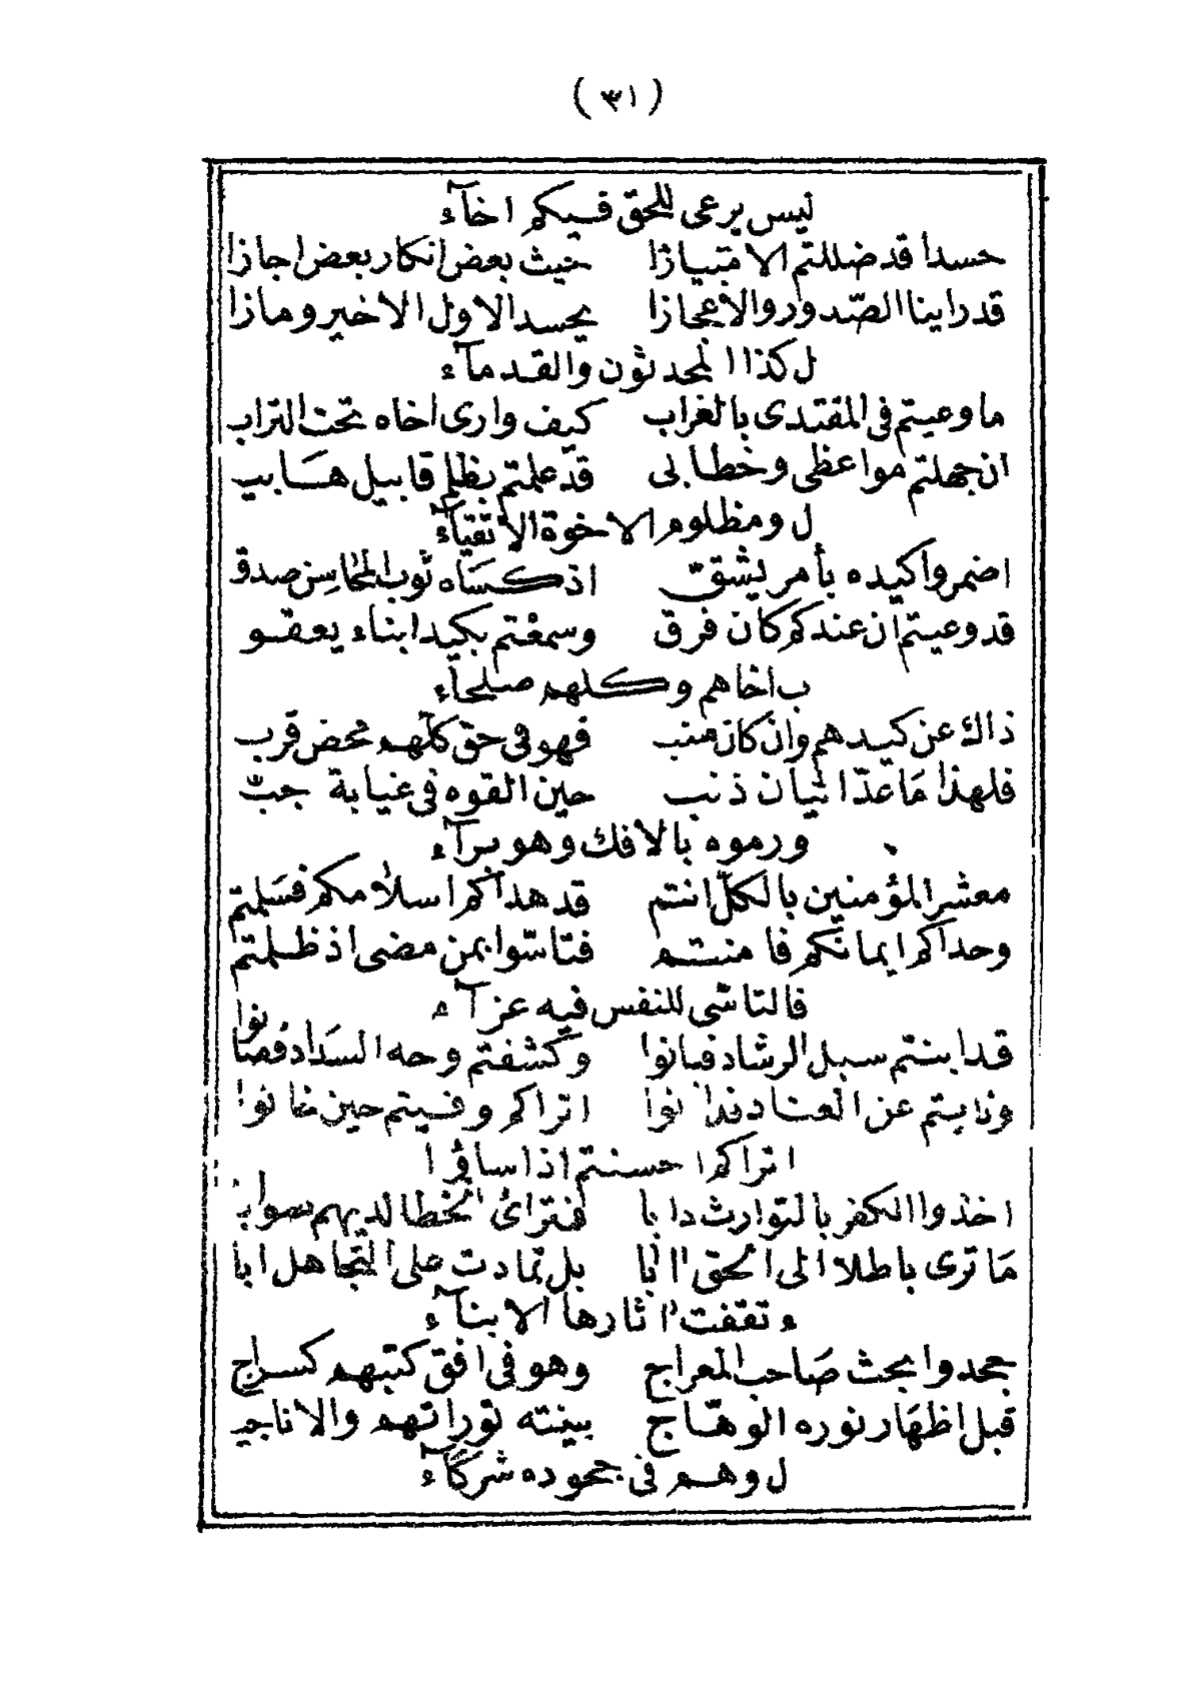 (٣١)
ليس يرعى للحق فيكم اخآء
حسدا قد ضللتم الامتيازا حيث بعض انكار بعض اجازا
قد راينا الصّدور والاعجازا يحسد الاول الاخير وما زا
ل كذا المحدثون والقدمآء
ما وعيتم فى المقتدى بالغراب كيف وارى اخاه تحت التراب
ان جهلتم مواعظى وخطابى قد علمتم بظلم قابيل هابيـ
ل ومظلوم الاخوة الاتقيآء
اضمروا كيده بأمر يشقّ اذ كساه ثوب المحاسن صدق
قد وعيتم ان عندكم كان فرق وسمعتم بكيد ابناء يعقو
ب اخاهم وكلهم صلحآء
ذاك عن كيدهم وان كان منب فهو فى حق كلّهم محض قرب
فلهذا مَا عدّ اتيان ذنب حين القوه فى غيابة جبّ
ورموه بالافك وهو برآء
معشر المؤمنين بالكلّ انتم قد هداكم اسلامكم فسَلمتم
وحداكم ايمانكم فامنتم فتاسّوا بمن مضى اذ ظلمتم
فالتاسّى للنفس فيه عزآء
قد ابنتم سبل الرشاد فبانوا وكشفتم وجه السَداد فصانوا
ونايتم عن العناد فدانوا اتراكم وفيتم حين خانوا
اتراكم احسنتم اذ اساؤا
اخذوا الكفر بالتوارث دابا فترائ الخطا لديهم صوابا
مَا ترى باطلا الى الحق ابا بل تمادت على التجاهل ابا
ء تقفت اثارها الابنآء
جحدوا بحث صَاحب المعراج وهو فى افق كتبهم كسراج
قبل اظهَار نوره الوهّاج بينته توراتهم والاناجيـ
ل وهم فى جحوده شركآء